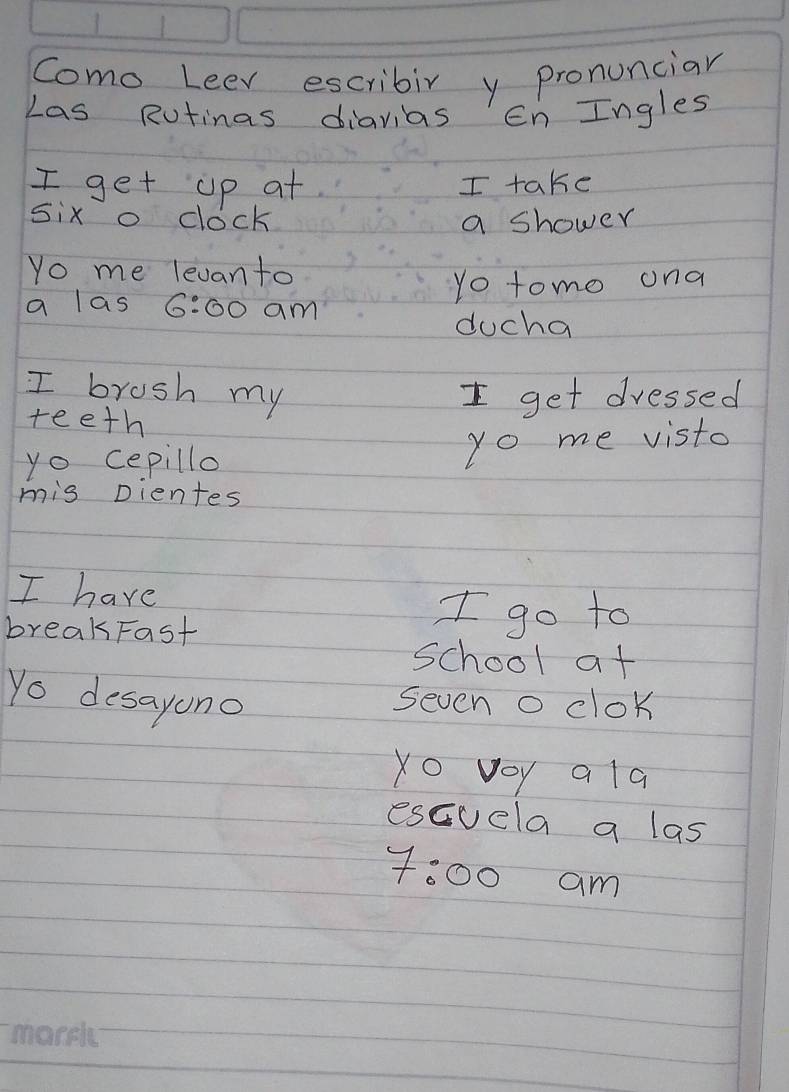 Como Leer escribir y pronunciar
Las Rutinas diarias En Ingles
I get up at
six o clock
yo me levanto
a las 6:00 am
I take
a shower
yo tomo una
ducha
I brush my
teeth
yo cepillo
mis Dientes
I get dressed
yo me visto
I have
breakFast
yo desayuno
I go to
school at
seven o clok
yo voy a la
escuela a las
7:00 am
marfil